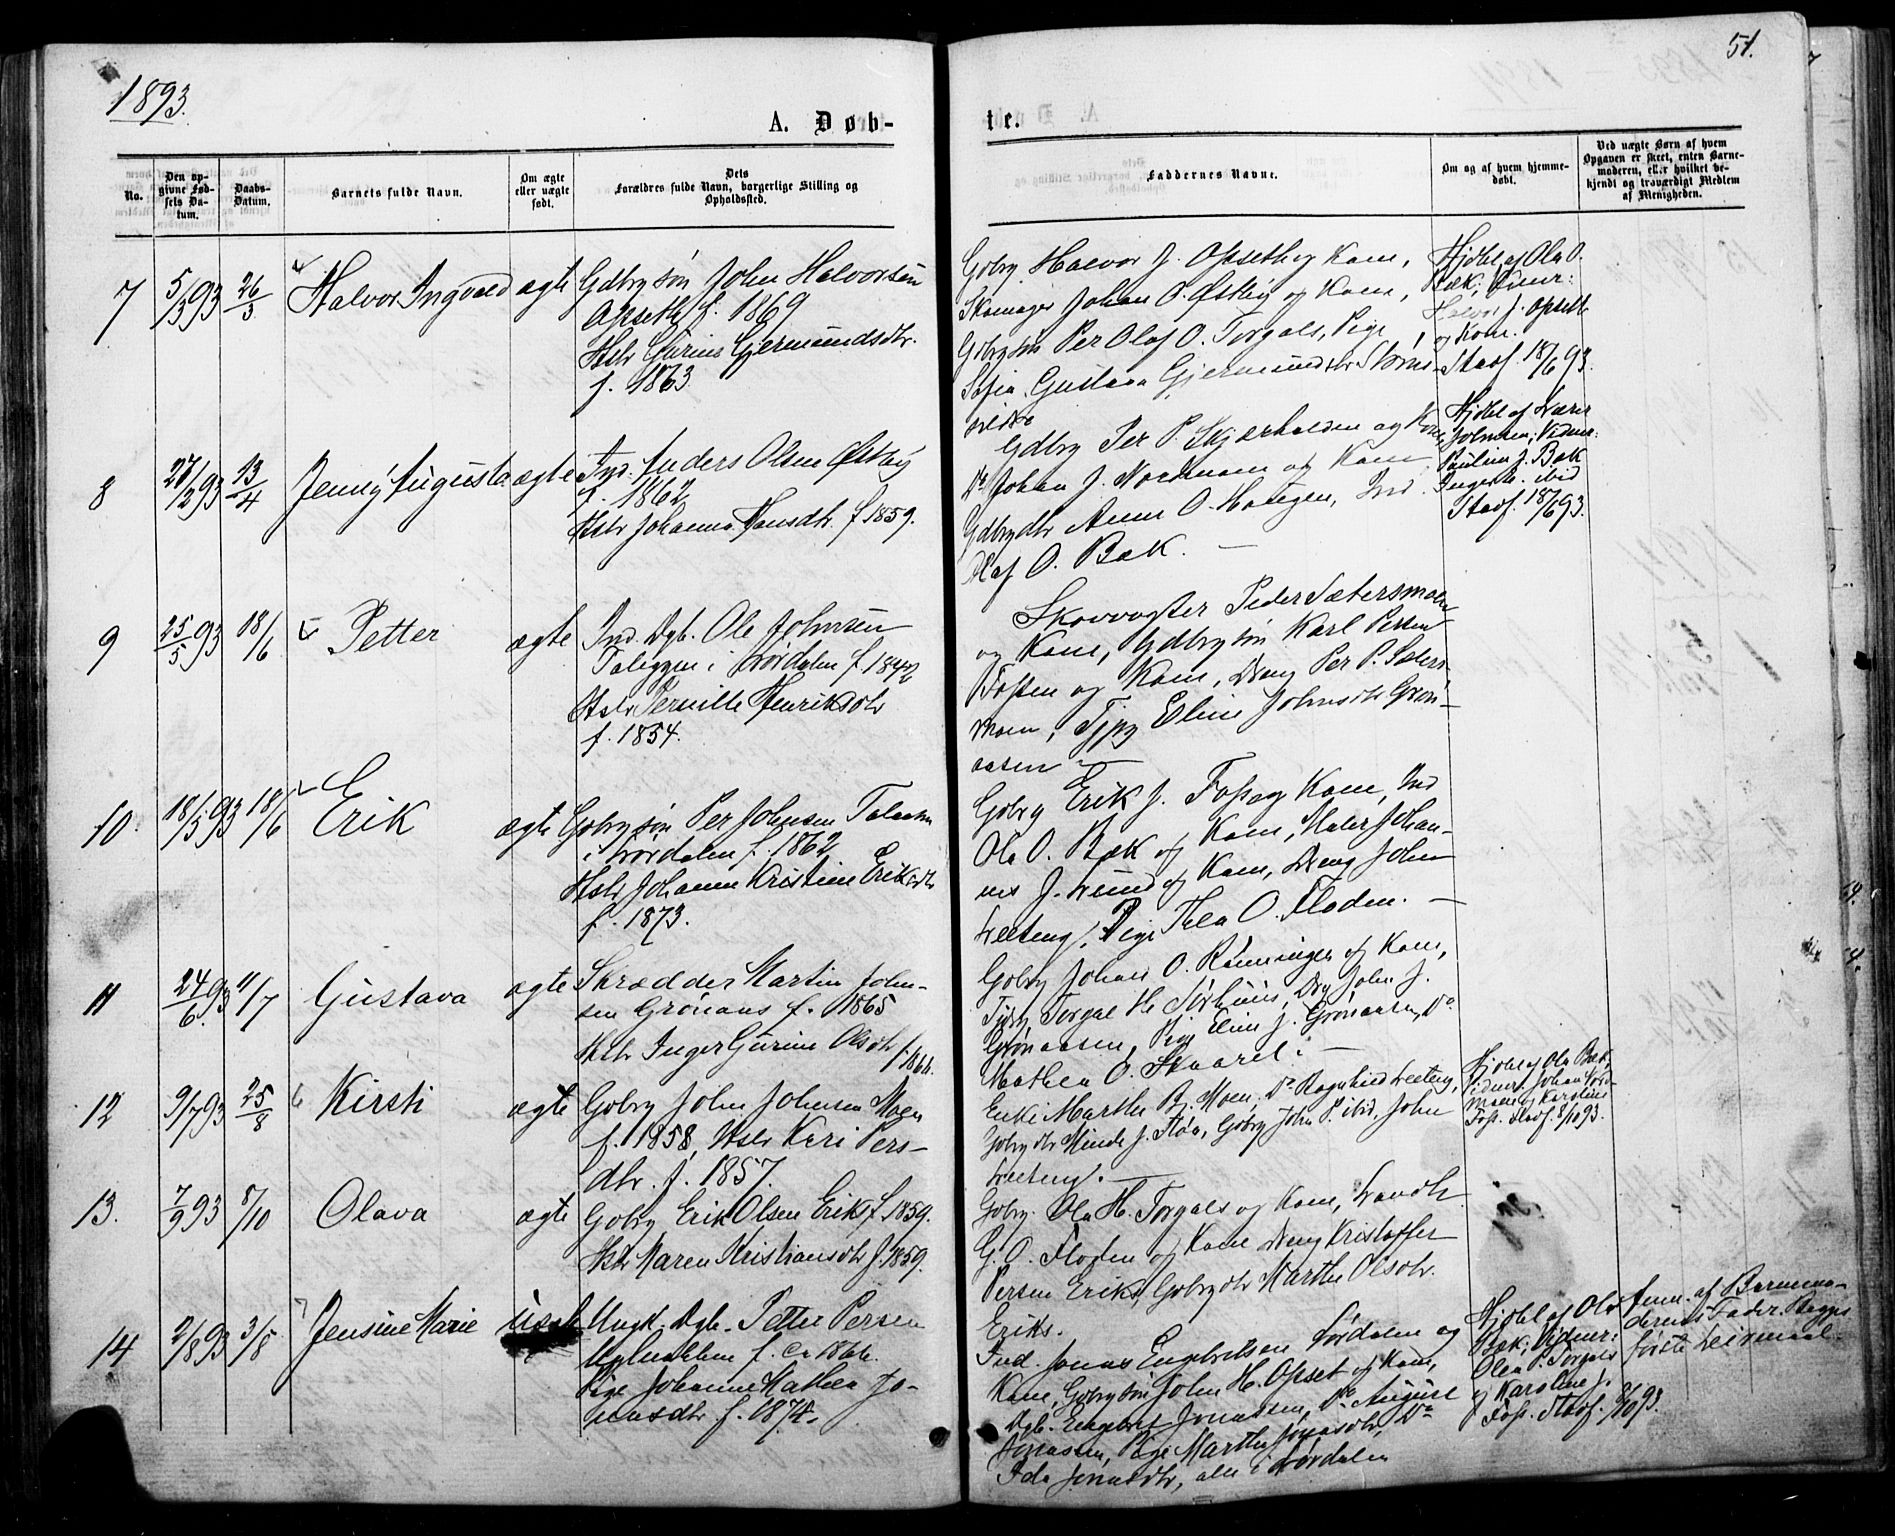 1893.
51.
A. Døb-
te.
No.
Den op-
givne Fød-
sels Da-
tum.
Daabs-
Datum.
Barnets fulde Navn.
Om ægte
eller uægte
født.
Dets
Forældres fulde Navn, borgerlige Stilling og
Opholdssted.
Faddernes Navne.
Om og af hvem hjemme-
døbt.
Ved uægte Børn af hvem
Opgaven er skeet, enten Barne-
moderen, eller hvilket be-
kjendt og troværdigt Medlem
af Menigheden.
7
5/3 93
26/3
Halvor Ingvald
ægte
Gdbrg søn John Halvorsen
Opseth f. 1869
Hstr Gurine Gjermundsdtr.
f. 1863
Gdbrg Halvor J. Opseth og Kone,
Skomager Johan O. Østby og Kone,
Gdbrg søn Per Olaf O. Torgals, Pige
Sofia Gustava Gjermundsdtr
Hjdbt af Ola O.
Bæk; Vidner:
Halvor J. Opseth
og Kone.
Stadf. 18/6 93.
8
27/2 93
13/4
Jenny Augusta
ægte
Ind. Anders Olsen Østby
f. 1862
Hstr Johanna Hansdtr. f 1859.
Gdbrg Per P. Skjærholden og Kone
Do Johan J. Nordmoen og Kone
Gdbrgdtr Anne O. Haugen, Ind.
Olaf O. Bæk. —
Hjdbt af Lærer
Johnsen; Vidner:
Pauline J. Bæk
Inger ibid
Stadf. 18/6 93.
9
25/5 93
18/6
Petter
ægte
Ind. Dgb. Ole Johnsen
i Lørdalen f 1842
Hstr Pernille Henriksdtr
f. 1854.
Skovvogter Peder Sætersmoen
og Kone, Gdbrg søn Karl Persen
Fossen og Kone, Dreng Per P. Sæters-
moen, Tjpg Eline Johnsdtr Grøn-
aasen —
10
18/5 93
18/6
Erik
ægte
Gdbrg søn Per Johnsen
i Lørdalen f. 1862
Hstr Johanne Kristine Eriksdtr
f. 1873.
Gdbrg Erik J. Foss og Kone, Ind
Ola O. Bæk og Kone, Maler Johan-
nes J. Lund og Kone, Dreng John
Leeteng, Pige Thea O. Floden. —
11
24/6 93
11/7
Gustava
ægte
Skrædder Martin John-
sen Grønaas f. 1865
Hstr Inger Gurine Olsdtr
f. 1866.
Gdbrg Johan O. Rønningen og Kone,
Torgal H. Sørhuus, Dng John J.
Grønaasen, Pige Eline J. Grønaasen, Do
Mathea O. Skaaret. —
12
9/7 93
25/8
Kirsti
ægte
Gdbrg John Johnsen Moen
f. 1858, Hstr Kari Pers-
dtr. f. 1857.
Enke Marthe Bj. Moen, Do Ragnhild Leeteng,
Gdbrg dtr Minda J. Fløa, Gdbrg John P. ibid, John
Leeteng. —
Hjdbt af Ola Bæk,
Vidner: Johan Nord-
moen og Karoline
Foss. Stadf. 8/10 93.
13.
7/9 93
8/10
Olava
ægte
Gdbrg Erik Olsen Eriks f. 1859.
Hstr Maren Kristiansdtr f. 1859.
Gdbrg. Ola H. Torgals og Kone, Landh.
G. O. Floden og Kone Dreng Kristoffer
Persen Eriks, Gdbrgdtr Marthe Olsdtr.
Eriks.
14
2/8 93
3/8
Jensine Marie
uægte
Ungk. Dgb. Petter Persen
f. ca 1866.
Pige Johanne Mathea Jo-
nasdtr f. 1874.
Ind. Jonas Engebretsen Lørdalen og
Kone, Gdbrg søn John H. Opset og Kone,
Dgb. Engebret Jonassen, Do August
Jonassen, Pige Marthe Jonasdtr, Do
Ida Jonasdtr, alle i Lørdalen
Hjdbt af Ola
Bæk; Vidner:
Olea P. Torgals
og Karoline J.
Foss. Stadf. 8/10 93.
Anm. af Barnemo-
derens Fader. Begges
første Leiermaal.